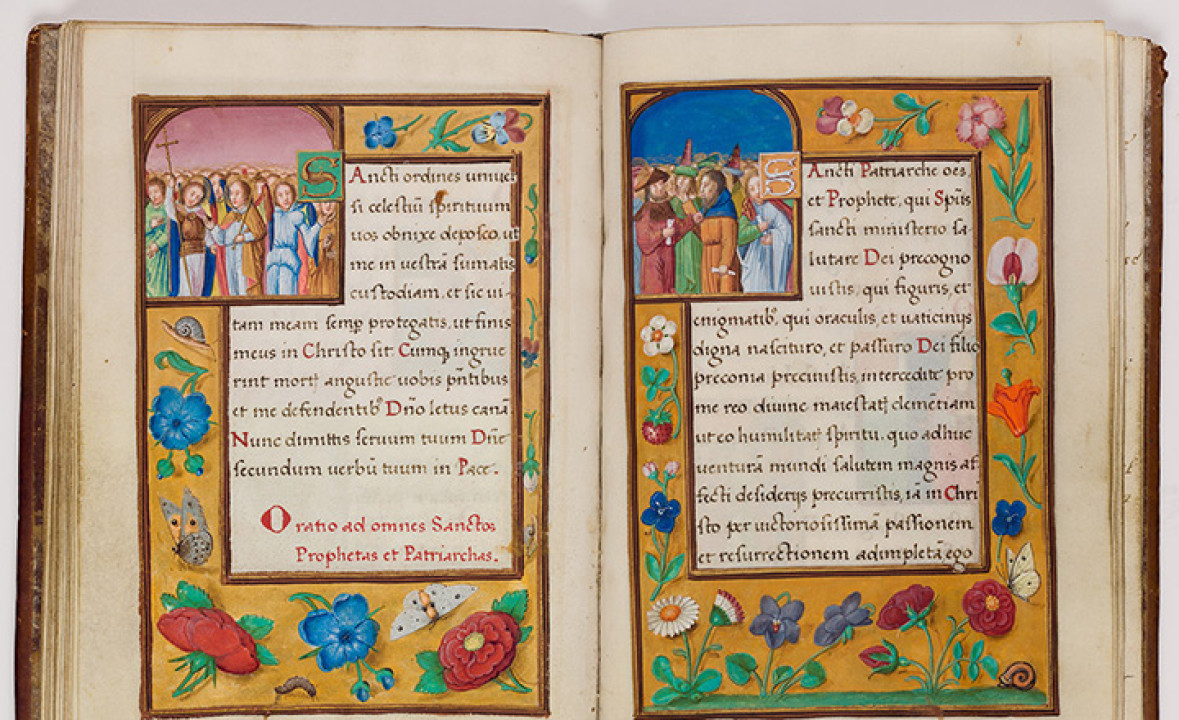 SAncti ordines uniuer
si celestiũ spirituum
uos obnixe deposco, ut
me in uestrã sumatis
custodiam, et sic ui-
tam meam semp̱ protegatis, ut finis
meus in Christo sit. Cumq̃ ingrue
rint mortꝭ angustie uobis p̃ntibus
et me defendentibꝰ Dño letus canã.
Nunc dimittis seruum tuum Dñe
secundum uerbũ tuum in Pace.
Oratio ad omnes Sanctos
Prophetas et Patriarchas.
SAncti Patriarche oẽs,
et Prophete, qui Spũs
sancti ministerio sa-
lutare Dei precogno
uistis, qui figuris, et
enigmatibꝰ, qui oraculis, et uaticinijs
digna nascituro, et passuro Dei filio
preconia precinistis, intercedite pro
me reo diuine maiestatꝭ clemẽtiam
ut eo humilitatꝭ spiritu, quo adhuc
uenturã mundi salutem magnis af
fecti desiderijs precurristis, iã in Chri
sto per uictoriosissimã passionem
et resurrectionem adimpletã ego